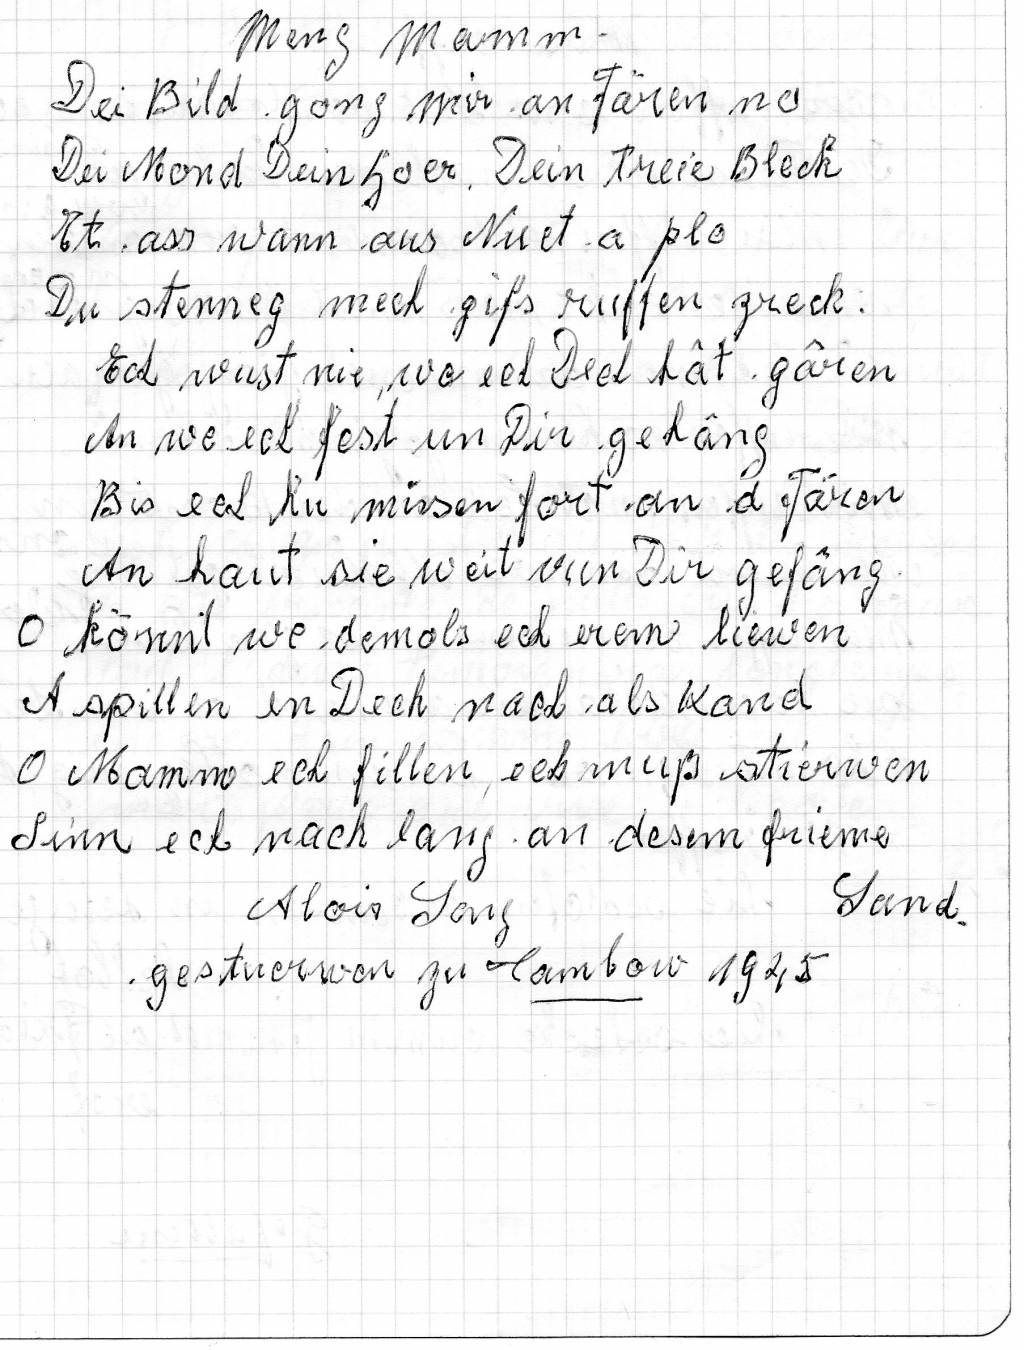 Meng Mamm.
Dei Bild gong mir an Fären no
Dei Mond Dein Hoer. Dein treie Bleck
Et ass wann aus Nuet a plo
Du stenneg mech gifs ruffen zreck.
Ech wust nie, wo ech Dech hât gâren
An we ech fest un Dir gehâng
Bis ech hu missen fort an d Fären
An haut sie weit vun Dir gefâng.
O könnt we demols ech erem liewen
A spillen en Dech nach als Kand
O Mamm ech fillen, ech muß stierwen
Sinn ech nach lang an desem frieme
Land.
Alois Lang
gestuerwen zu Tambow 1945